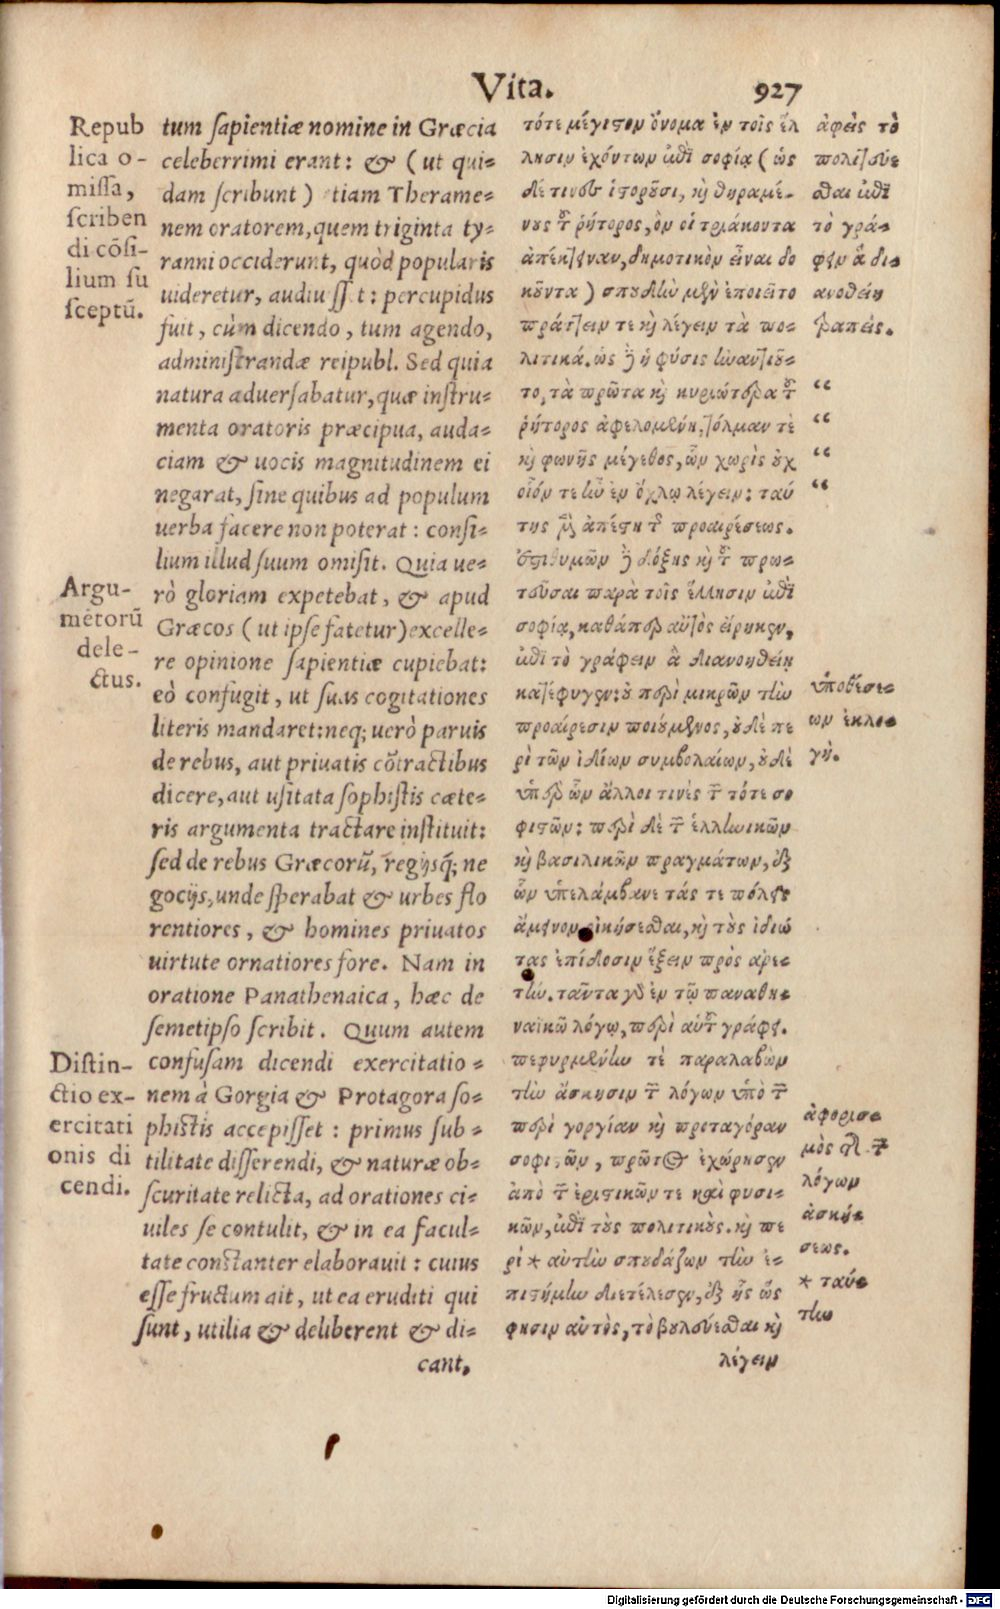 Vita.
927
Repub
lica o-
missa,
scriben
di cōsi-
lium su
sceptū.
Argu-
mētorū
dele-
ctus.
Distin-
ctio ex-
ercitati
onis di
cendi.
tum sapientiæ nomine in Græcia
celeberrimi erant: & (ut qui-
dam scribunt) etiam Therame-
nem oratorem, quem triginta ty-
ranni occiderunt, quòd popularis
uideretur, audiuisset: percupidus
fuit, cùm dicendo, tum agendo,
administrandæ reipubl. Sed quia
natura aduersabatur, quæ instru-
menta oratoris præcipua, auda-
ciam & uocis magnitudinem ei
negarat, sine quibus ad populum
uerba facere non poterat: consi-
lium illud suum omisit. Quia ue-
rò gloriam expetebat, & apud
Græcos (ut ipse fatetur) excelle-
re opinione sapientiæ cupiebat:
eò confugit, ut suas cogitationes
literis mandaret: neq; uerò paruis
de rebus, aut priuatis cōtractibus
dicere, aut usitata sophistis cæte-
ris argumenta tractare instituit:
sed de rebus Græcorū, regijsq́; ne
gocijs, unde sperabat & urbes flo
rentiores, & homines priuatos
uirtute ornatiores fore. Nam in
oratione Panathenaica, hæc de
semetipso scribit. Quum autem
confusam dicendi exercitatio-
nem à Gorgia & Protagora so-
phistis accepisset: primus sub-
tilitate disserendi, & naturæ ob-
scuritate relicta, ad orationes ci-
uiles se contulit, & in ea facul-
tate constanter elaborauit: cuius
esse fructum ait, ut ea eruditi qui
sunt, utilia & deliberent & di-
cant,
τότε μέγιστον ὄνομα ἐν τοῖς ἕλ
λησιν ἐχόντων ἐπὶ σοφίᾳ (ὡς
δέ τινες ἱστοροῦσι, καὶ θηραμέ-
νους τοῦ ῥήτορος, ὃν οἱ τριάκοντα
ἀπέκτειναν, δημοτικὸν εἶναι δο
κοῦντα) σπουδὴν μὲν ἐποιεῖτο
πράττειν τε καὶ λέγειν τὰ πο-
λιτικά. ὡς δὲ ἡ φύσις ἠναντιοῦ-
το, τὰ πρῶτα καὶ κυριώτερα τοῦ
ῥήτορος ἀφελομένη, τόλμαν τὲ
καὶ φωνῆς μέγεθος, ὧν χωρὶς οὐχ
οἷόν τε ἦν ἐν ὄχλῳ λέγειν: ταύ
της μὲν ἀπέστη τῆς προαιρέσεως.
ἐπιθυμῶν δὲ δόξης καὶ τοῦ πρω-
τεῦσαι παρὰ τοῖς ἕλλησιν ἐπὶ
σοφίᾳ, καθάπερ αὐτὸς εἴρηκεν,
ἐπὶ τὸ γράφειν ἃ διανοηθείη
κατέφυγεν: οὐ περὶ μικρῶν τὴν
προαίρεσιν ποιούμενος, οὐδὲ πε
ρὶ τῶν ἰδίων συμβολαίων, οὐδὲ
ὑπὲρ ὧν ἄλλοι τινὲς τῶν τότε σο
φιστῶν: περὶ δὲ τῶν ἑλληνικῶν
καὶ βασιλικῶν πραγμάτων, ἐξ
ὧν ὑπελάμβανε τάς τε πόλεις
ἄμεινον οἰκήσεσθαι, καὶ τοὺς ἰδιώ
τας ἐπίδοσιν ἕξειν πρὸς ἀρε-
τήν. ταῦτα γὰρ ἐν τῷ παναθη-
ναϊκῷ λόγῳ, περὶ αὑτοῦ γράφει.
πεφυρμένην τὲ παραλαβὼν
τὴν ἄσκησιν τῶν λόγων ὑπὸ τῶν
περὶ γοργίαν καὶ πρωταγόραν
σοφιστῶν, πρῶτος ἐχώρησεν
ἀπὸ τῶν ἐριστικῶν τε καὶ φυσι-
κῶν, ἐπὶ τοὺς πολιτικοὺς. καὶ πε
ρὶ * αὐτὴν σπουδάζων τὴν ἐ-
πιστήμην διετέλεσεν, ἐξ ἧς ὥς
φησιν αὐτὸς, τὸ βουλεύεσθαι καὶ
λέγειν
ἀφεὶς τὸ
πολιτεύε
σθαι ἐπὶ
τὸ γρά-
φειν ἃ δι-
ανοηθείη
τραπείς.
“
“
“
“
ὑποθέσε-
ων ἐκλο-
γή.
ἀφορισ-
μὸς τῆς τῶν
λόγων
ἀσκή-
σεως.
* ταύ-
την
Digitalisierung gefördert durch die Deutsche Forschungsgemeinschaft - DFG